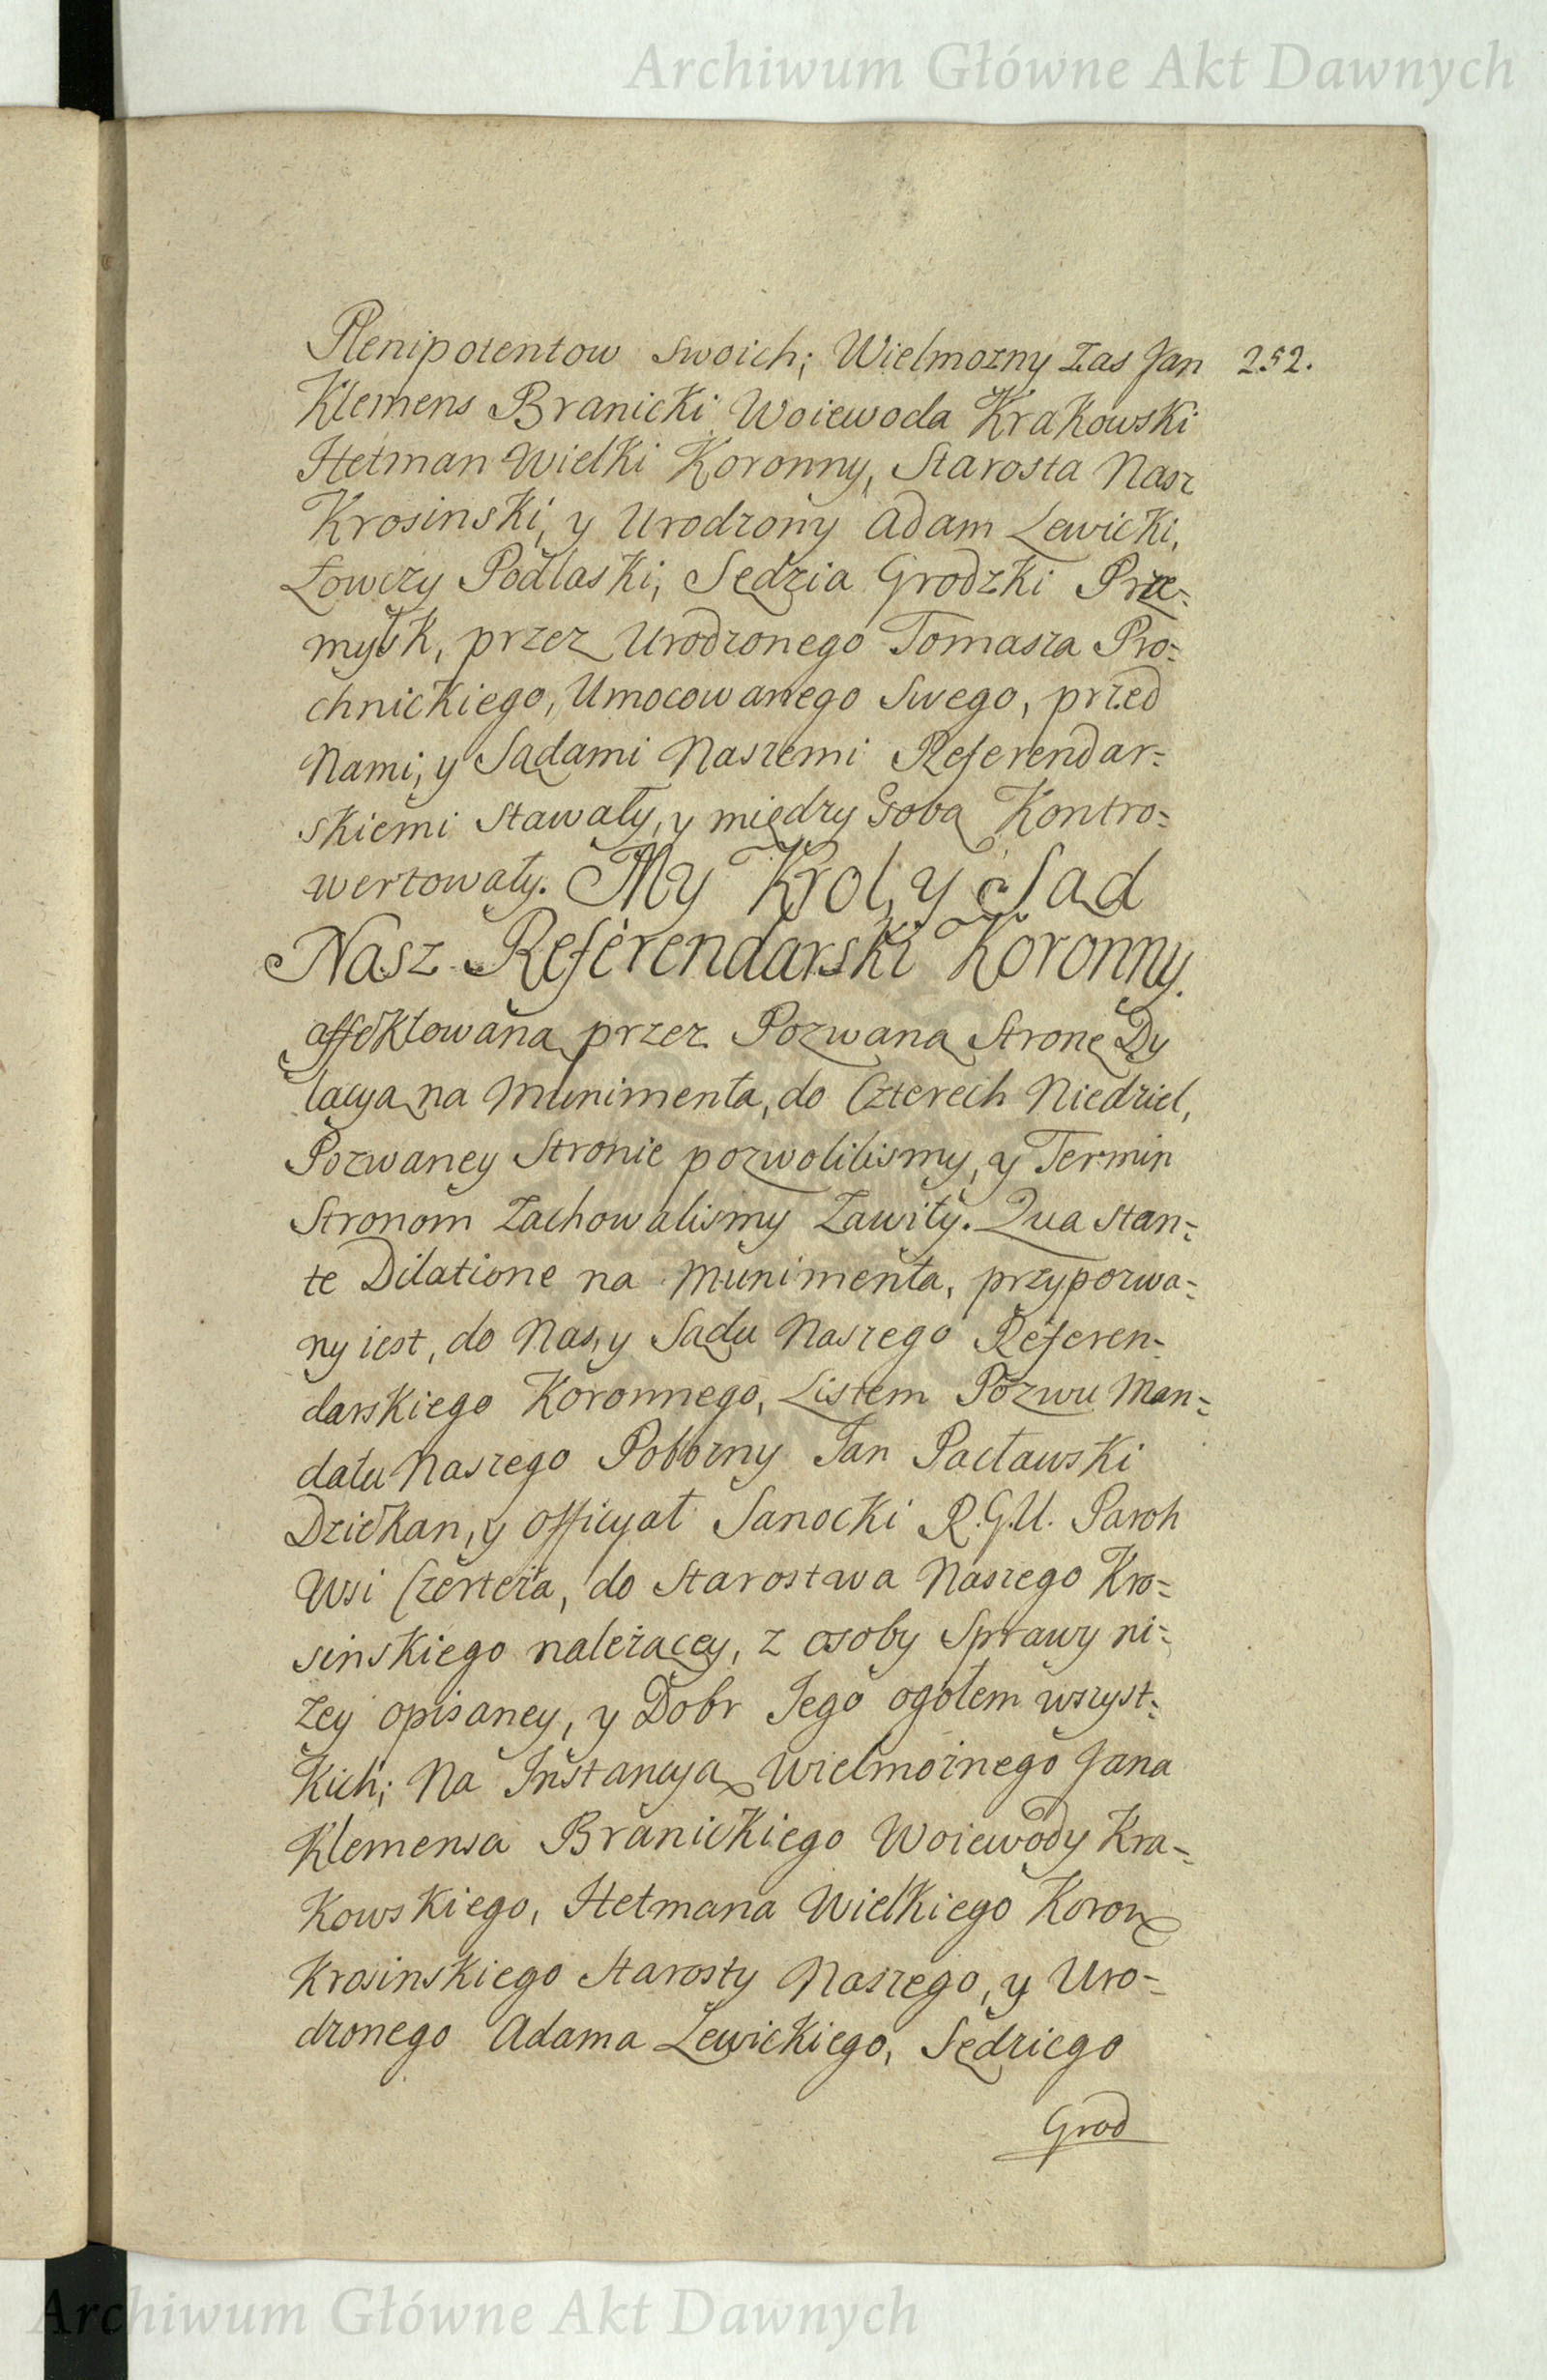 Archiwum Główne Akt Dawnych
Plenipotentow Swoich; Wielmozny zas Jan 252.
Klemens Branicki Woiewoda Krakowski
Hetman Wielki Koronny, Starosta Nasz
Krosinski, y Urodzony Adam Lewicki,
Łowczy Podlaski, Sędzia Grodzki Prze-
mysk, przez Urodzonego Tomasza Pro-
chnickiego, Umocowanego Swego, przed
Nami, y Sądami Naszemi Referendar-
skiemi stawały, y między sobą Kontro-
wertowały. My Krol, y Sąd
Nasz Referendarski Koronny.
affektowaną przez Pozwaną Stronę Dy
lacyą na Munimenta, do Czterech Niedziel,
Pozwaney Stronie pozwolilismy, y Termin
Stronom zachowalismy Zawity. Qua stan-
te Dilatione na Munimenta, przypozwa-
ny iest, do Nas, y Sądu Naszego Referen-
darskiego Koronnego, Listem Pozwu Man-
datu Naszego Pobozny Jan Pacławski
Dziekan, y Officyał Sanocki R.G.U. Paroh
Wsi Czerteża, do Starostwa Naszego Kro-
sinskiego należącey, z osoby Sprawy ni-
zey opisaney, y Dobr Jego ogołem wszyst-
kich; Na Instancyą Wielmożnego Jana
Klemensa Branickiego Woiewody Kra-
kowskiego, Hetmana Wielkiego Koron
Krosinskiego Starosty Naszego, y Uro-
dzonego Adama Lewickiego, Sędziego
Grod
Archiwum Główne Akt Dawnych